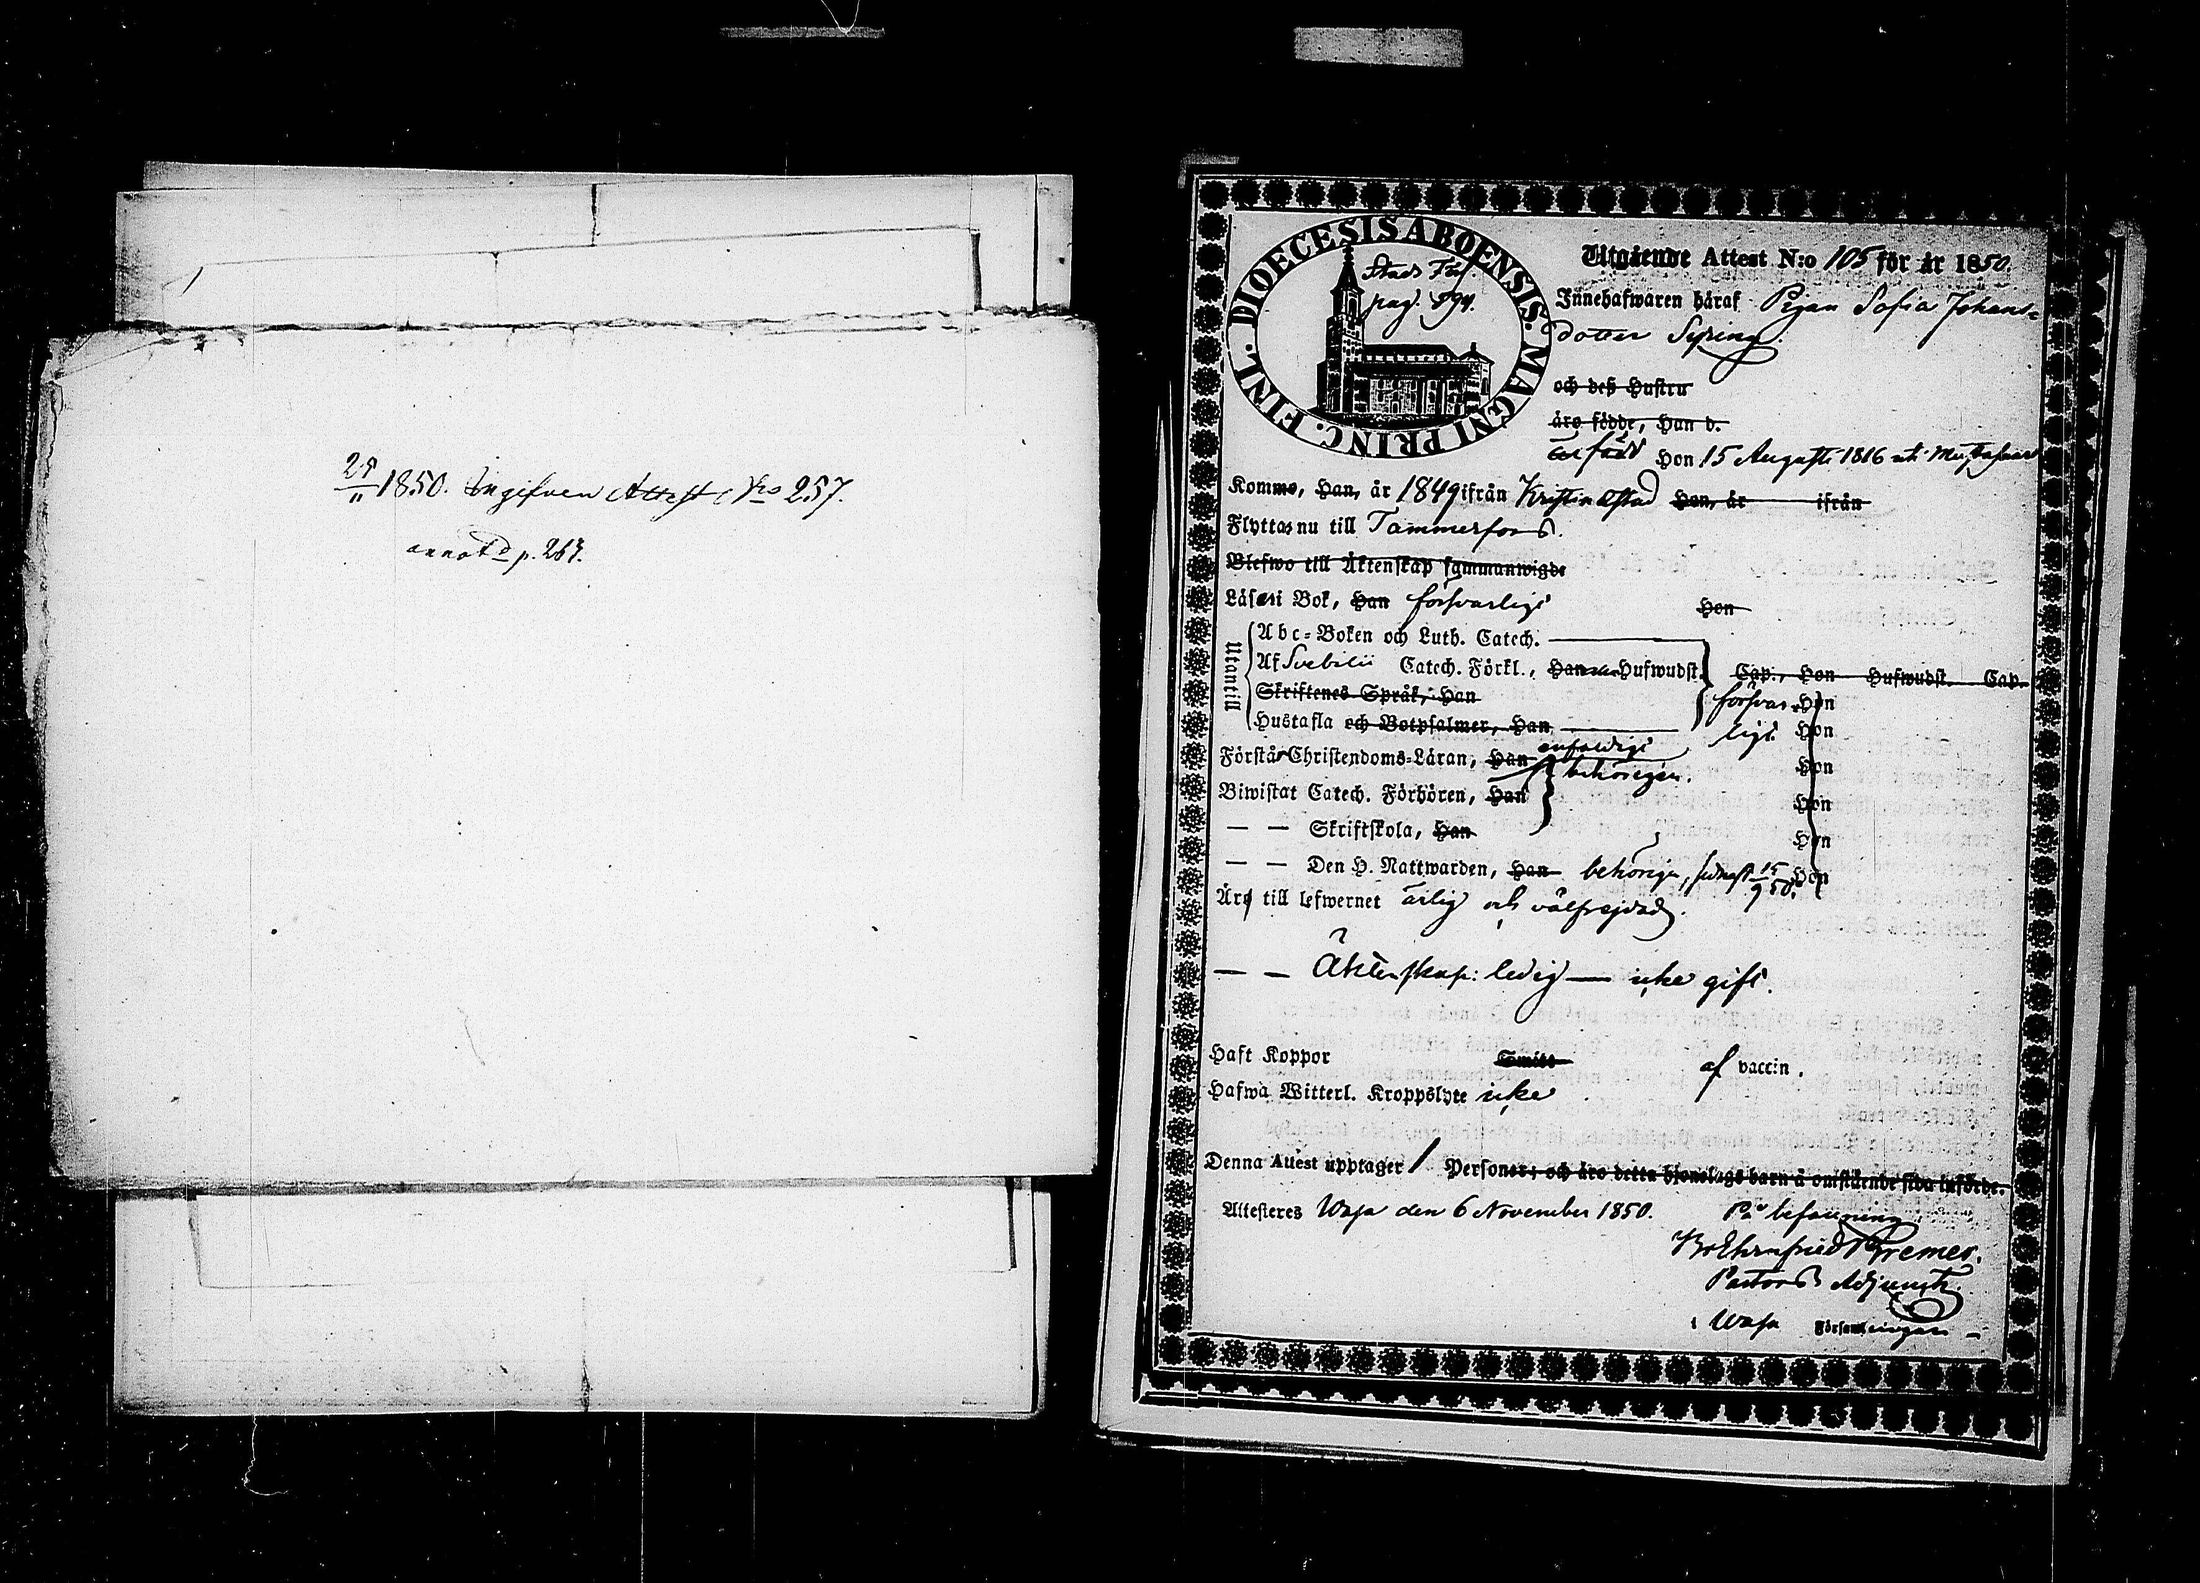 25/11 1850. Ingifven Attest No 257.
annot.d p. 267.
DIOECESIS ABOENSIS. MAGNI PRINC. FINL.
Stads Förs.
pag. 594.
Utgående Attest N:o 105 för år 1850.
Innehafwaren häraf Pigan Sofia Johans-
dotter Syring.
och deß Hustru
äro födde, Han d.
är född Hon 15 Augusti 1816 uti Mustasaari
Komme, Han, år 1849 ifrån Kristinæstad Hon, år ifrån
Flyttas nu till Tammerfors.
Blefwo till Äktenskap sammanwigde
Läser i Bok, Han försvarligt Hon
Utantill
Abc-Boken och Luth. Catech.
Af Svebilii Catech. Förkl., Han Hufwudst. Cap., Hon Hufwudst. Cap.
Skriftenes Språk, Han försvar- Hon
Hustafla och Botpsalmer, Han ligt Hon
Förstår Christendoms-Läran, Han enfaldigt Hon
Biwistat Catech. Förhören, Han behörigen. Hon
— — Skriftskola, Han Hon
— — Den H. Nattwarden, Han behörigt, sednast 15/9 50. Hon
Äro till lefwernet ärlig och välfrejdad.
— — Äktenskap: ledig — icke gift.
Haft Koppor Smitt af vaccin.
Hafwa Witterl. Kroppslyte icke
Denna Attest upptager 1 Personer; och äro detta hjonelags barn å omstående sida införde.
Attesteres Wasa den 6 November 1850. På befallning
Br Ehrnfried Bremer.
Pastors Adjunct.
i Wasa Församlingar